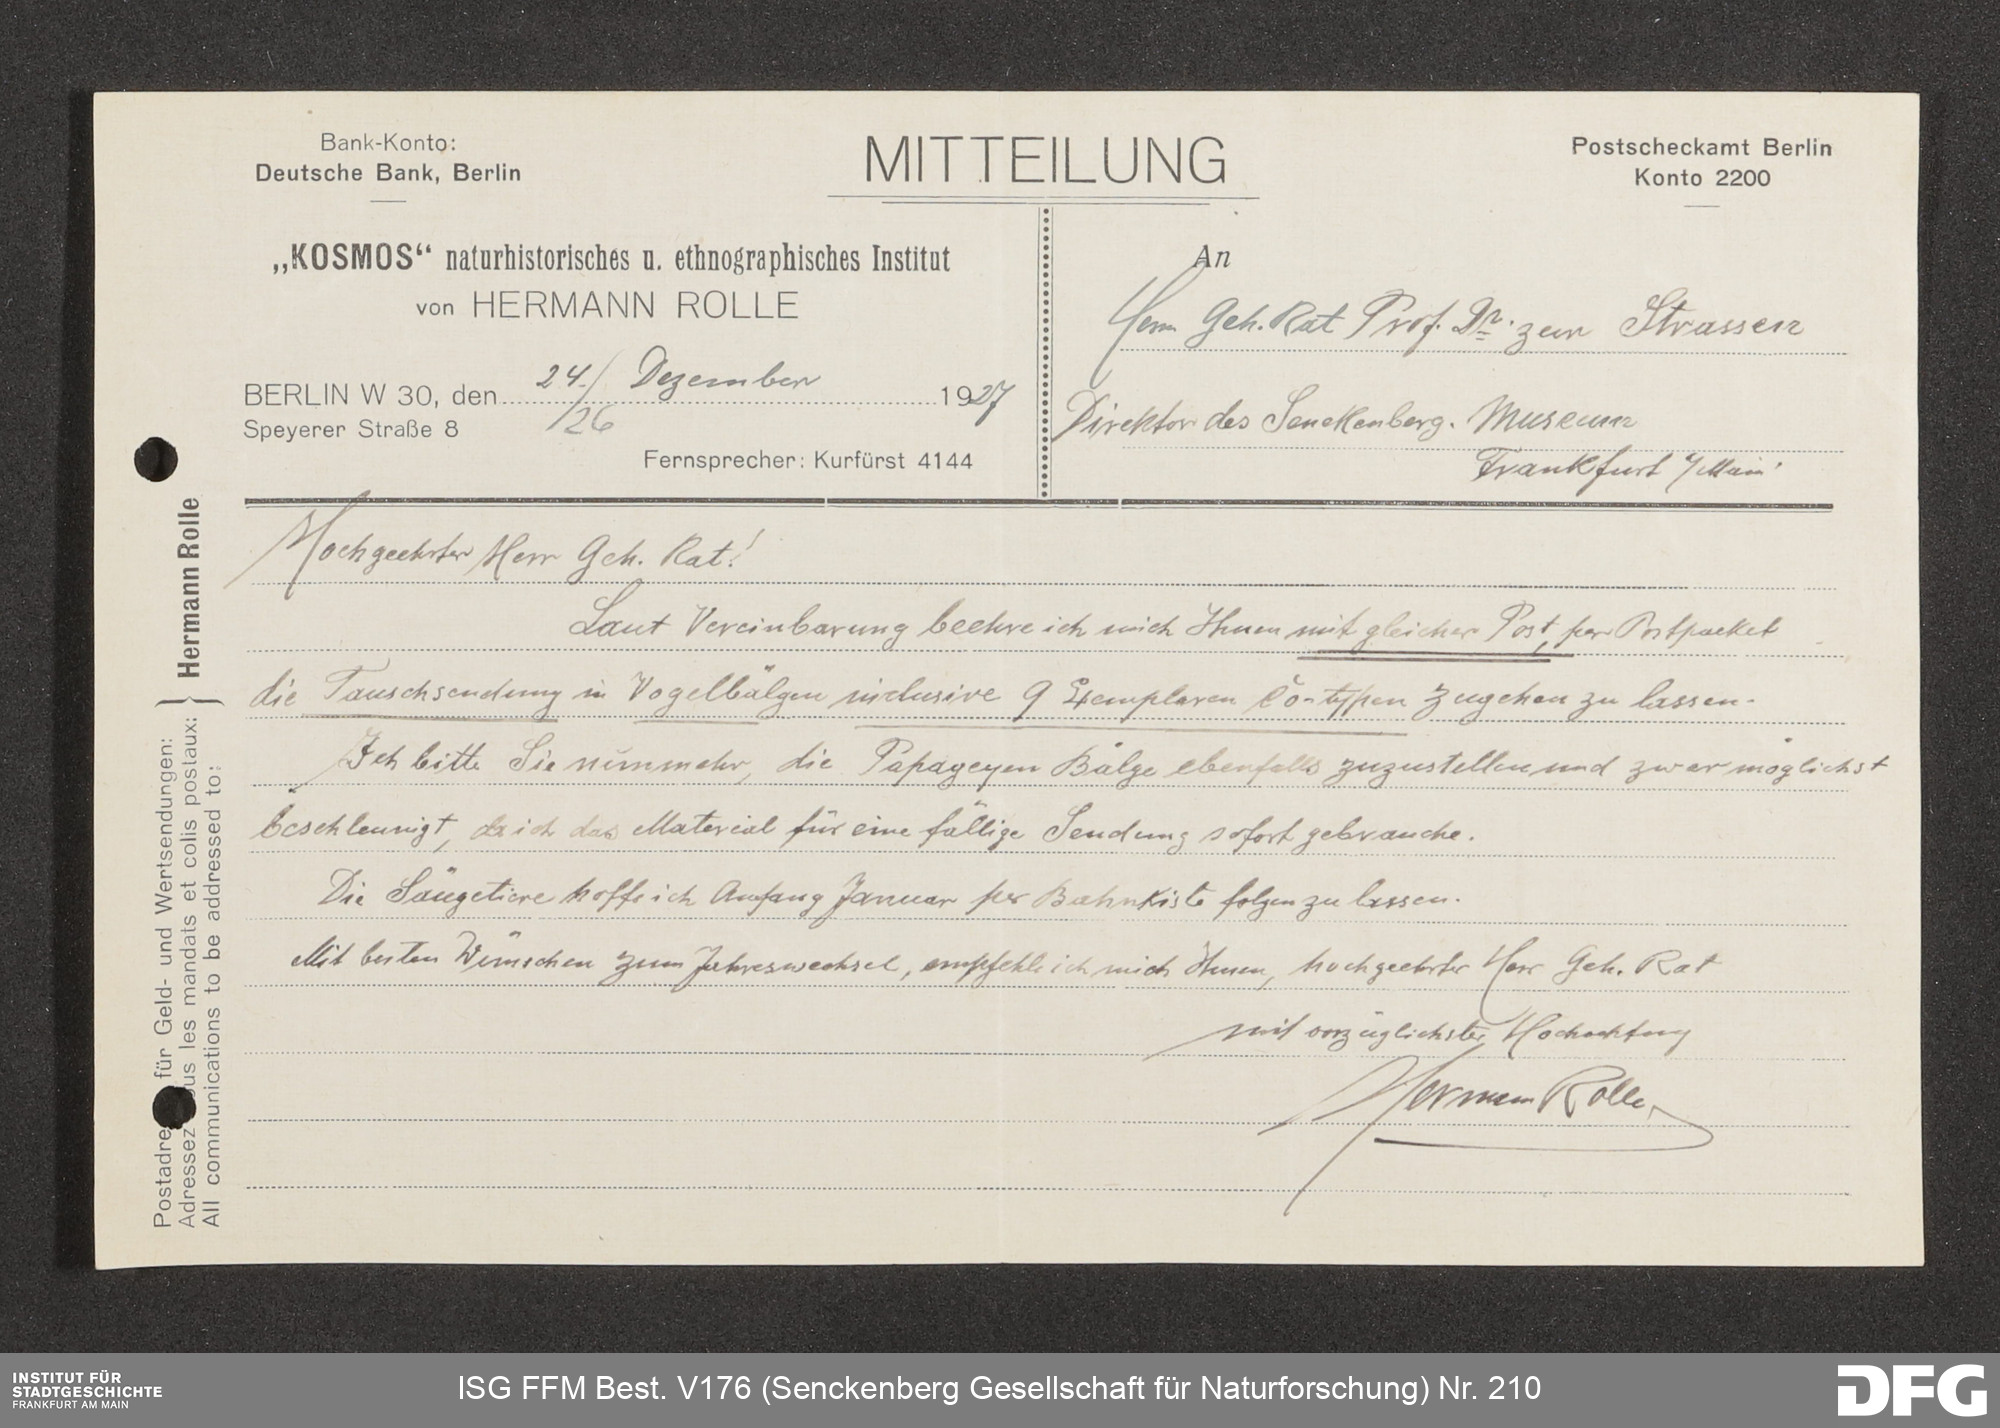 Bank-Konto:
Deutsche Bank, Berlin
MITTEILUNG
Postscheckamt Berlin
Konto 2200
„KOSMOS“ naturhistorisches u. ethnographisches Institut
von HERMANN ROLLE
BERLIN W 30, den 24./ Dezember 1927
/26
Speyerer Straße 8
Fernsprecher: Kurfürst 4144
An
Herrn Geh. Rat Prof. Dr. zur Strassen
Direktor des Senckenberg. Museum
Frankfurt a/Main.
Hochgeehrter Herr Geh. Rat!
Laut Vereinbarung beehre ich mich Ihnen mit gleicher Post, per Postpacket
die Tauschsendung in Vogelbälgen inclusive 9 Exemplaren Co-typen zugehen zu lassen.
Ich bitte Sie nunmehr, die Papageyen Bälge ebenfalls zuzustellen und zwar möglichst
beschleunigt, da ich das Material für eine fällige Sendung sofort gebrauche.
Die Säugetiere hoffe ich Anfang Januar per Bahnkiste folgen zu lassen.
Mit besten Wünschen zum Jahreswechsel, empfehle ich mich Ihnen, hochgeehrter Herr Geh. Rat
mit vorzüglichster Hochachtung
Hermann Rolle
Postadre für Geld- und Wertsendungen:
Adressez us les mandats et colis postaux:
All communications to be addressed to:
} Hermann Rolle
INSTITUT FÜR
STADTGESCHICHTE
FRANKFURT AM MAIN
ISG FFM Best. V176 (Senckenberg Gesellschaft für Naturforschung) Nr. 210
DFG